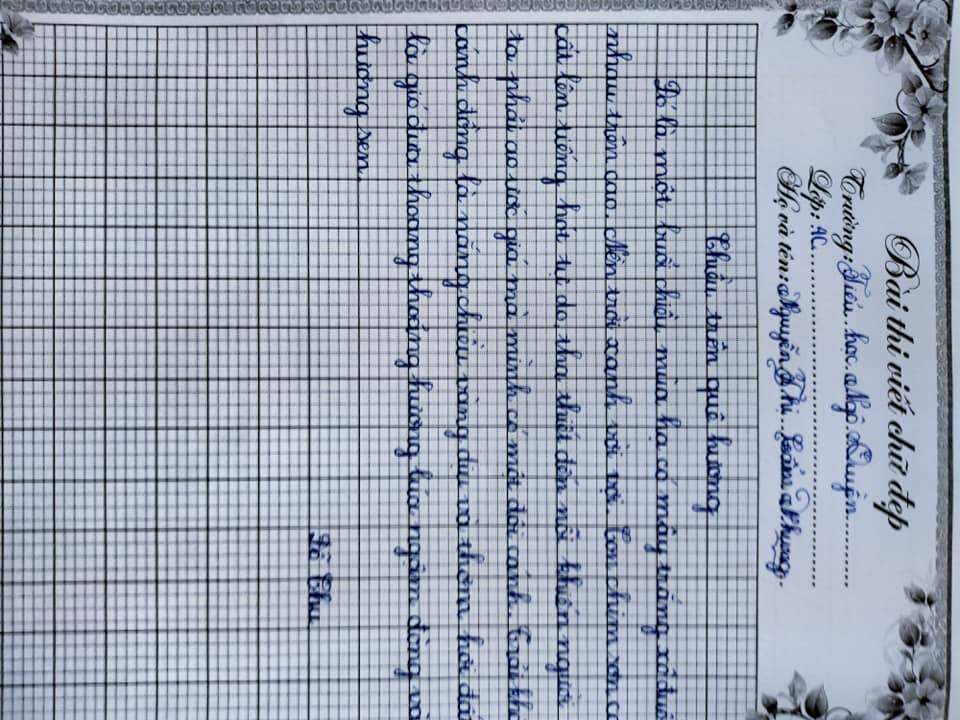 Bài thi viết chữ đẹp
Trường: Tiểu học Ngô Quyền
Lớp: 4C
Họ và tên: Nguyễn Thị Cẩm Nhung
Chiều trên quê hương
Đó là một buổi chiều mùa hạ có mây trắng xô đuổ
nhau trên cao. Nền trời xanh vời vợi. Con chim sơn c
cất lên tiếng hót tự do, tha thiết đến nỗi khiến người
ta phải ao ước giá mà mình có một đôi cánh. Trải kh
cánh đồng là nắng chiều vàng dịu và thơm hơi đấ
là gió đưa thoang thoảng hương lúa ngậm đòng và
hương sen.
Đỗ Chu